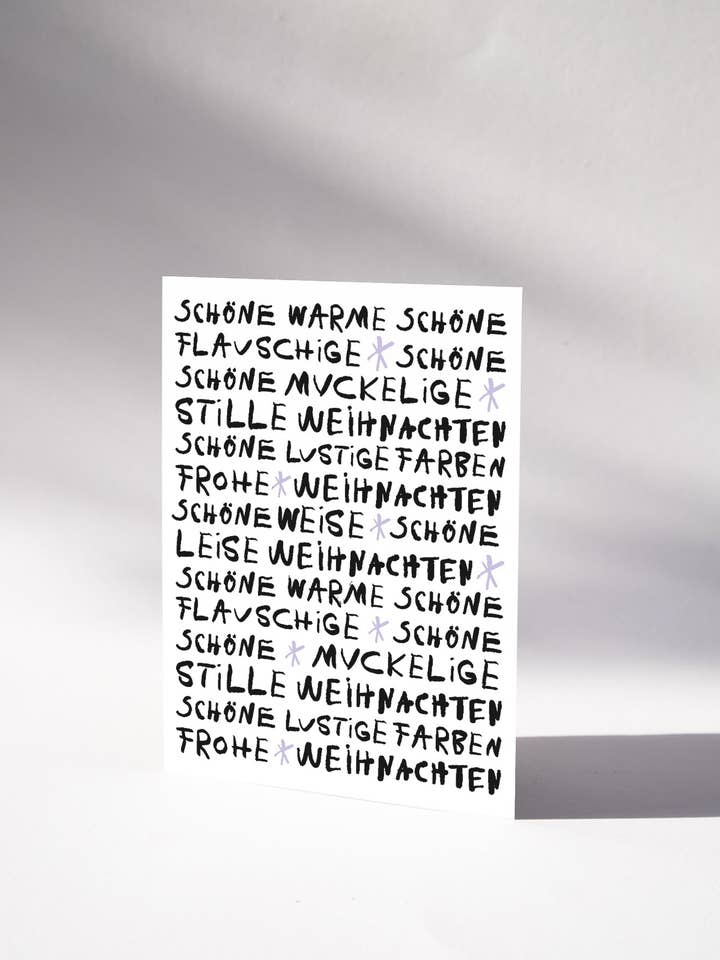 SCHÖNE WARME SCHÖNE
FLAUSCHIGE * SCHÖNE
SCHÖNE MUCKELIGE *
STILLE WEIHNACHTEN
SCHÖNE LUSTIGE FARBEN
FROHE * WEIHNACHTEN
SCHÖNE WEISE * SCHÖNE
LEISE WEIHNACHTEN *
SCHÖNE WARME SCHÖNE
FLAUSCHIGE * SCHÖNE
SCHÖNE * MUCKELIGE
STILLE WEIHNACHTEN
SCHÖNE LUSTIGE FARBEN
FROHE * WEIHNACHTEN